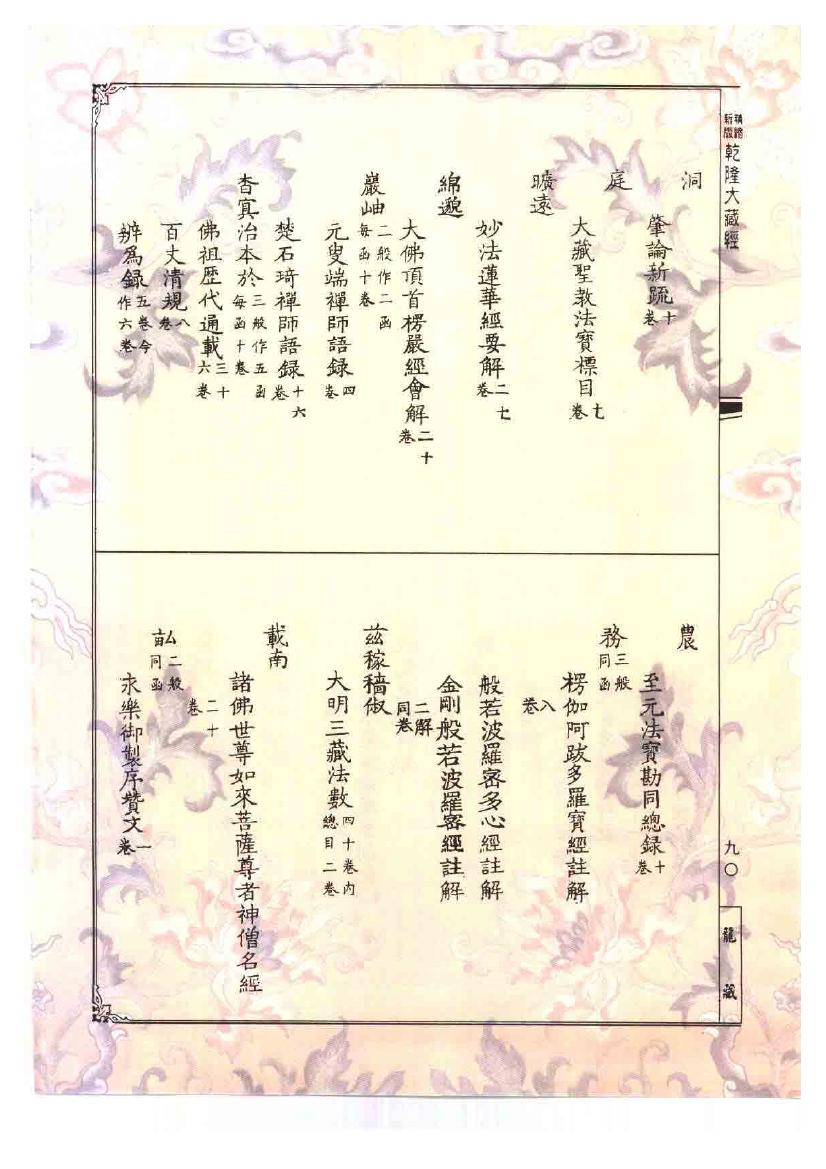 精縮新版 乾隆大藏經
洞
肇論新疏十卷
庭
大藏聖教法寶標目七卷
曠遠
妙法蓮華經要解二七卷
綿邈
大佛頂首楞嚴經會解二十卷
巖岫二般作二函每函十卷
元叟端禪師語録四卷
楚石琦禪師語録十六卷
杳冥治本於三般作五函每函十卷
佛祖歴代通載三十六卷
百丈清規八卷
辨爲録五卷今作六卷
農
至元法寶勘同總録十卷
務三般同函
楞伽阿跋多羅寶經註解
八卷
般若波羅密多心經註解
金剛般若波羅密經註解
二解同卷
茲稼穡俶
大明三藏法數四十卷內總目二卷
載南
諸佛世尊如來菩薩尊者神僧名經
二十卷
畝二般同函
永樂御製序贊文一卷
九〇
龍藏